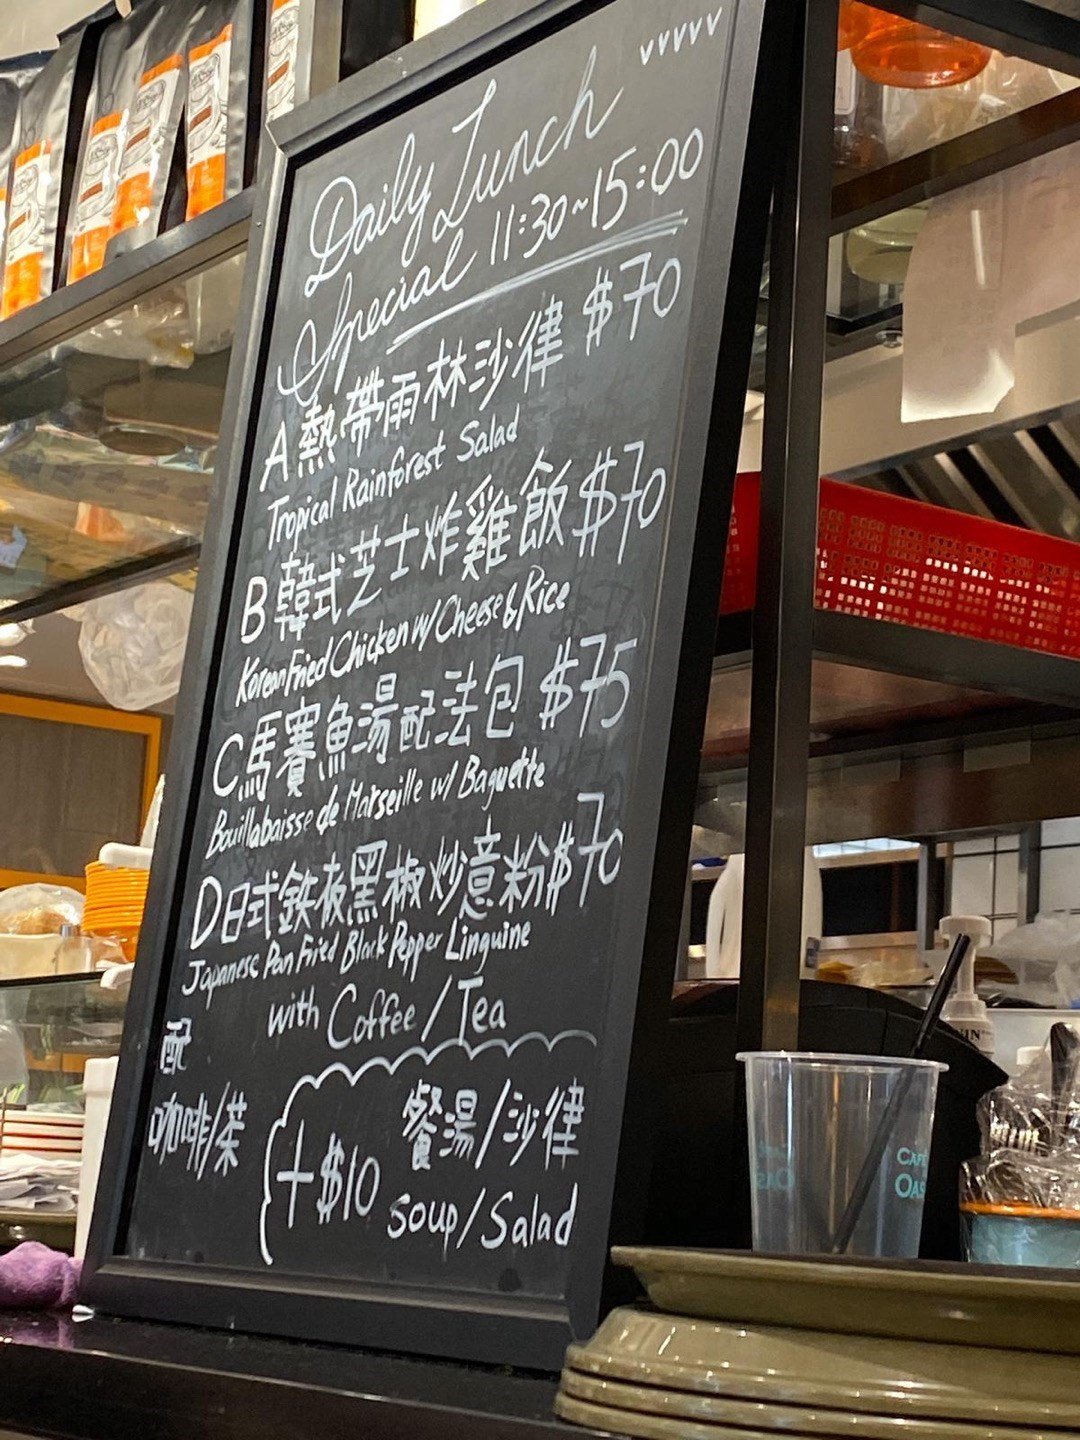 vvvvv
Daily Lunch
Special 11:30~15:00
A 熱帶雨林沙律 $70
Tropical Rainforest Salad
B 韓式芝士炸雞飯 $70
Korean Fried Chicken w/ Cheese & Rice
C 馬賽魚湯配法包 $75
Bouillabaisse de Marseille w/ Baguette
D 日式鉄板黑椒炒意粉 $70
Japanese Pan Fried Black Pepper Linguine
with Coffee / Tea
配
咖啡/茶
+$10 餐湯/沙律
Soup/Salad
CAFÉ
OAS